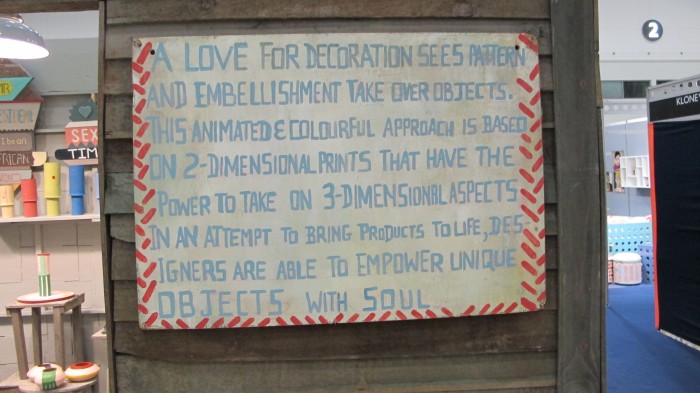 A LOVE FOR DECORATION SEES PATTERN
AND EMBELLISHMENT TAKE OVER OBJECTS.
THIS ANIMATED & COLOURFUL APPROACH IS BASED
ON 2-DIMENSIONAL PRINTS THAT HAVE THE
POWER TO TAKE ON 3-DIMENSIONAL ASPECTS
IN AN ATTEMPT TO BRING PRODUCTS TO LIFE, DES-
IGNERS ARE ABLE TO EMPOWER UNIQUE
OBJECTS WITH SOUL
2
SEX
TIM
RICAN